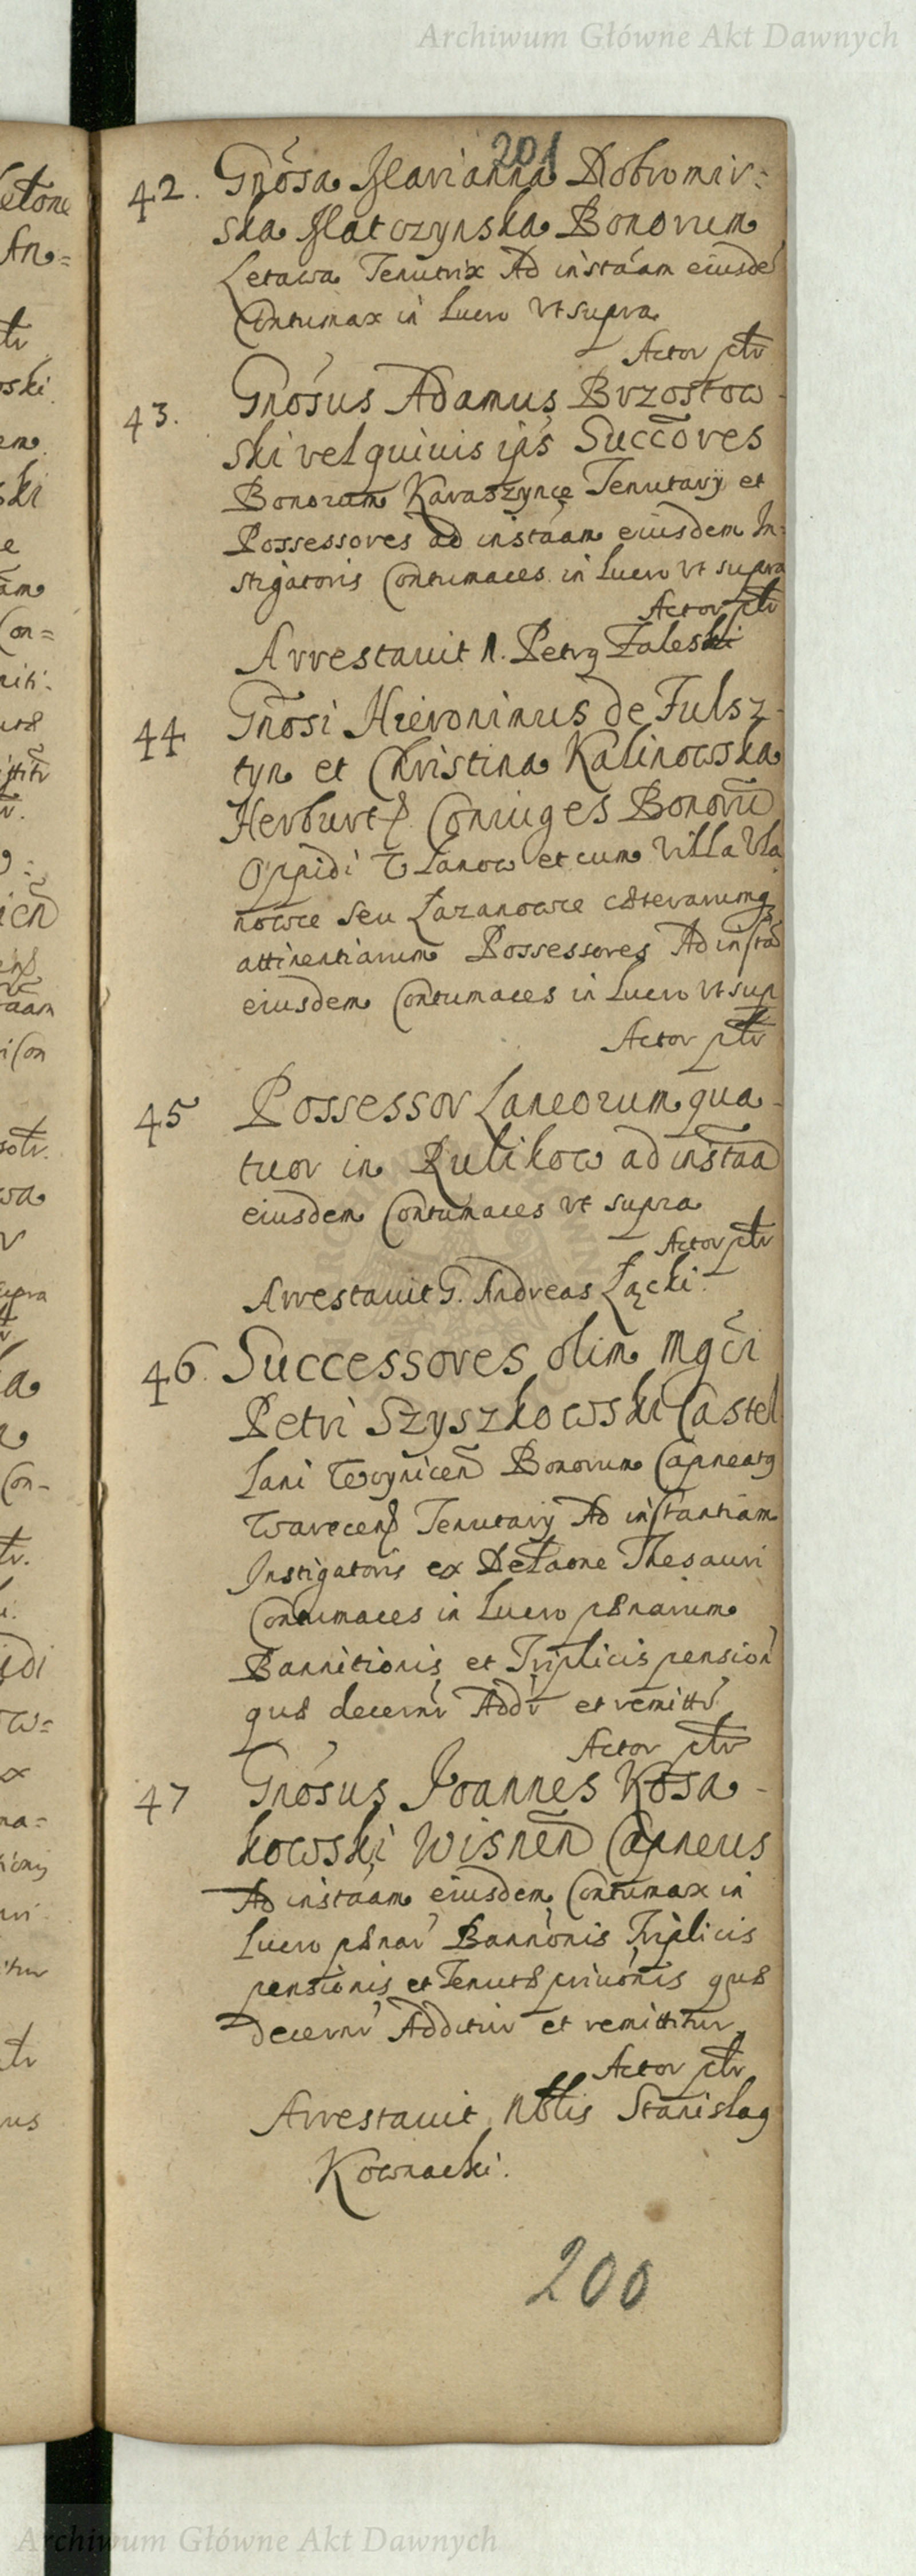 Archiwum Główne Akt Dawnych
201
42. Gnõsa Marianna Dobromir:
ska Matczynska Bonorum
Letawa Tenutrix Ad instãam eiusdẽ
Contumax in Lucro Vt supra
Actor ptr
43. Gnõsus Adamus Brzostow-
ski vel quiuis ipĩs Succõres
Bonorum Karaszynce Tenutarÿ et
Possessores ad instãam eiusdem In:
stigatoris Contumaces in Lucro Vt supra
Actor ptr
Arrestauit N. Petrq Zaleski
44 Gnõsi Hieronimus de Fulsz-
tyn et Christina Kalinowska
Herburt Coniuges Bonorũ
Oppidi Vlanow et cum Villa Vla
nowce seu Łazanowce cæterarumq
attinentiarum Possessores Ad instã
eiusdem Contumaces in Lucro Vt sup
Actor ptr
45 Possessor Laneorum qua-
tuor in Kulikow ad instãa
eiusdem Contumaces vt supra
Actor ptr
Arrestauit G. Andreas Łącki.
46. Successores olim Mgcĩ
Petri Szyszkowski Castel
lani Woynicen̄ Bonorum Capneatq
Warecen Tenutarÿ Ad instantiam
Instigatoris ex Delãone Thesauri
Contumaces in Lucro pænarum
Bannitionis et Triplicis pension
quæ decernr Addr et remittr
Actor ptr
47 Gnõsus Joannes Kosa-
kowski Wisnen̄ Capneus
Ad instãam eiusdem Contumax in
Lucro pænar Bannõnis Triplicis
pensionis et Tenutæ priuõnis quæ
decernr Additur et remittitur
Actor ptr
Arrestauit Nblis Stanislaq
Kownacki.
200
Archiwum Główne Akt Dawnych